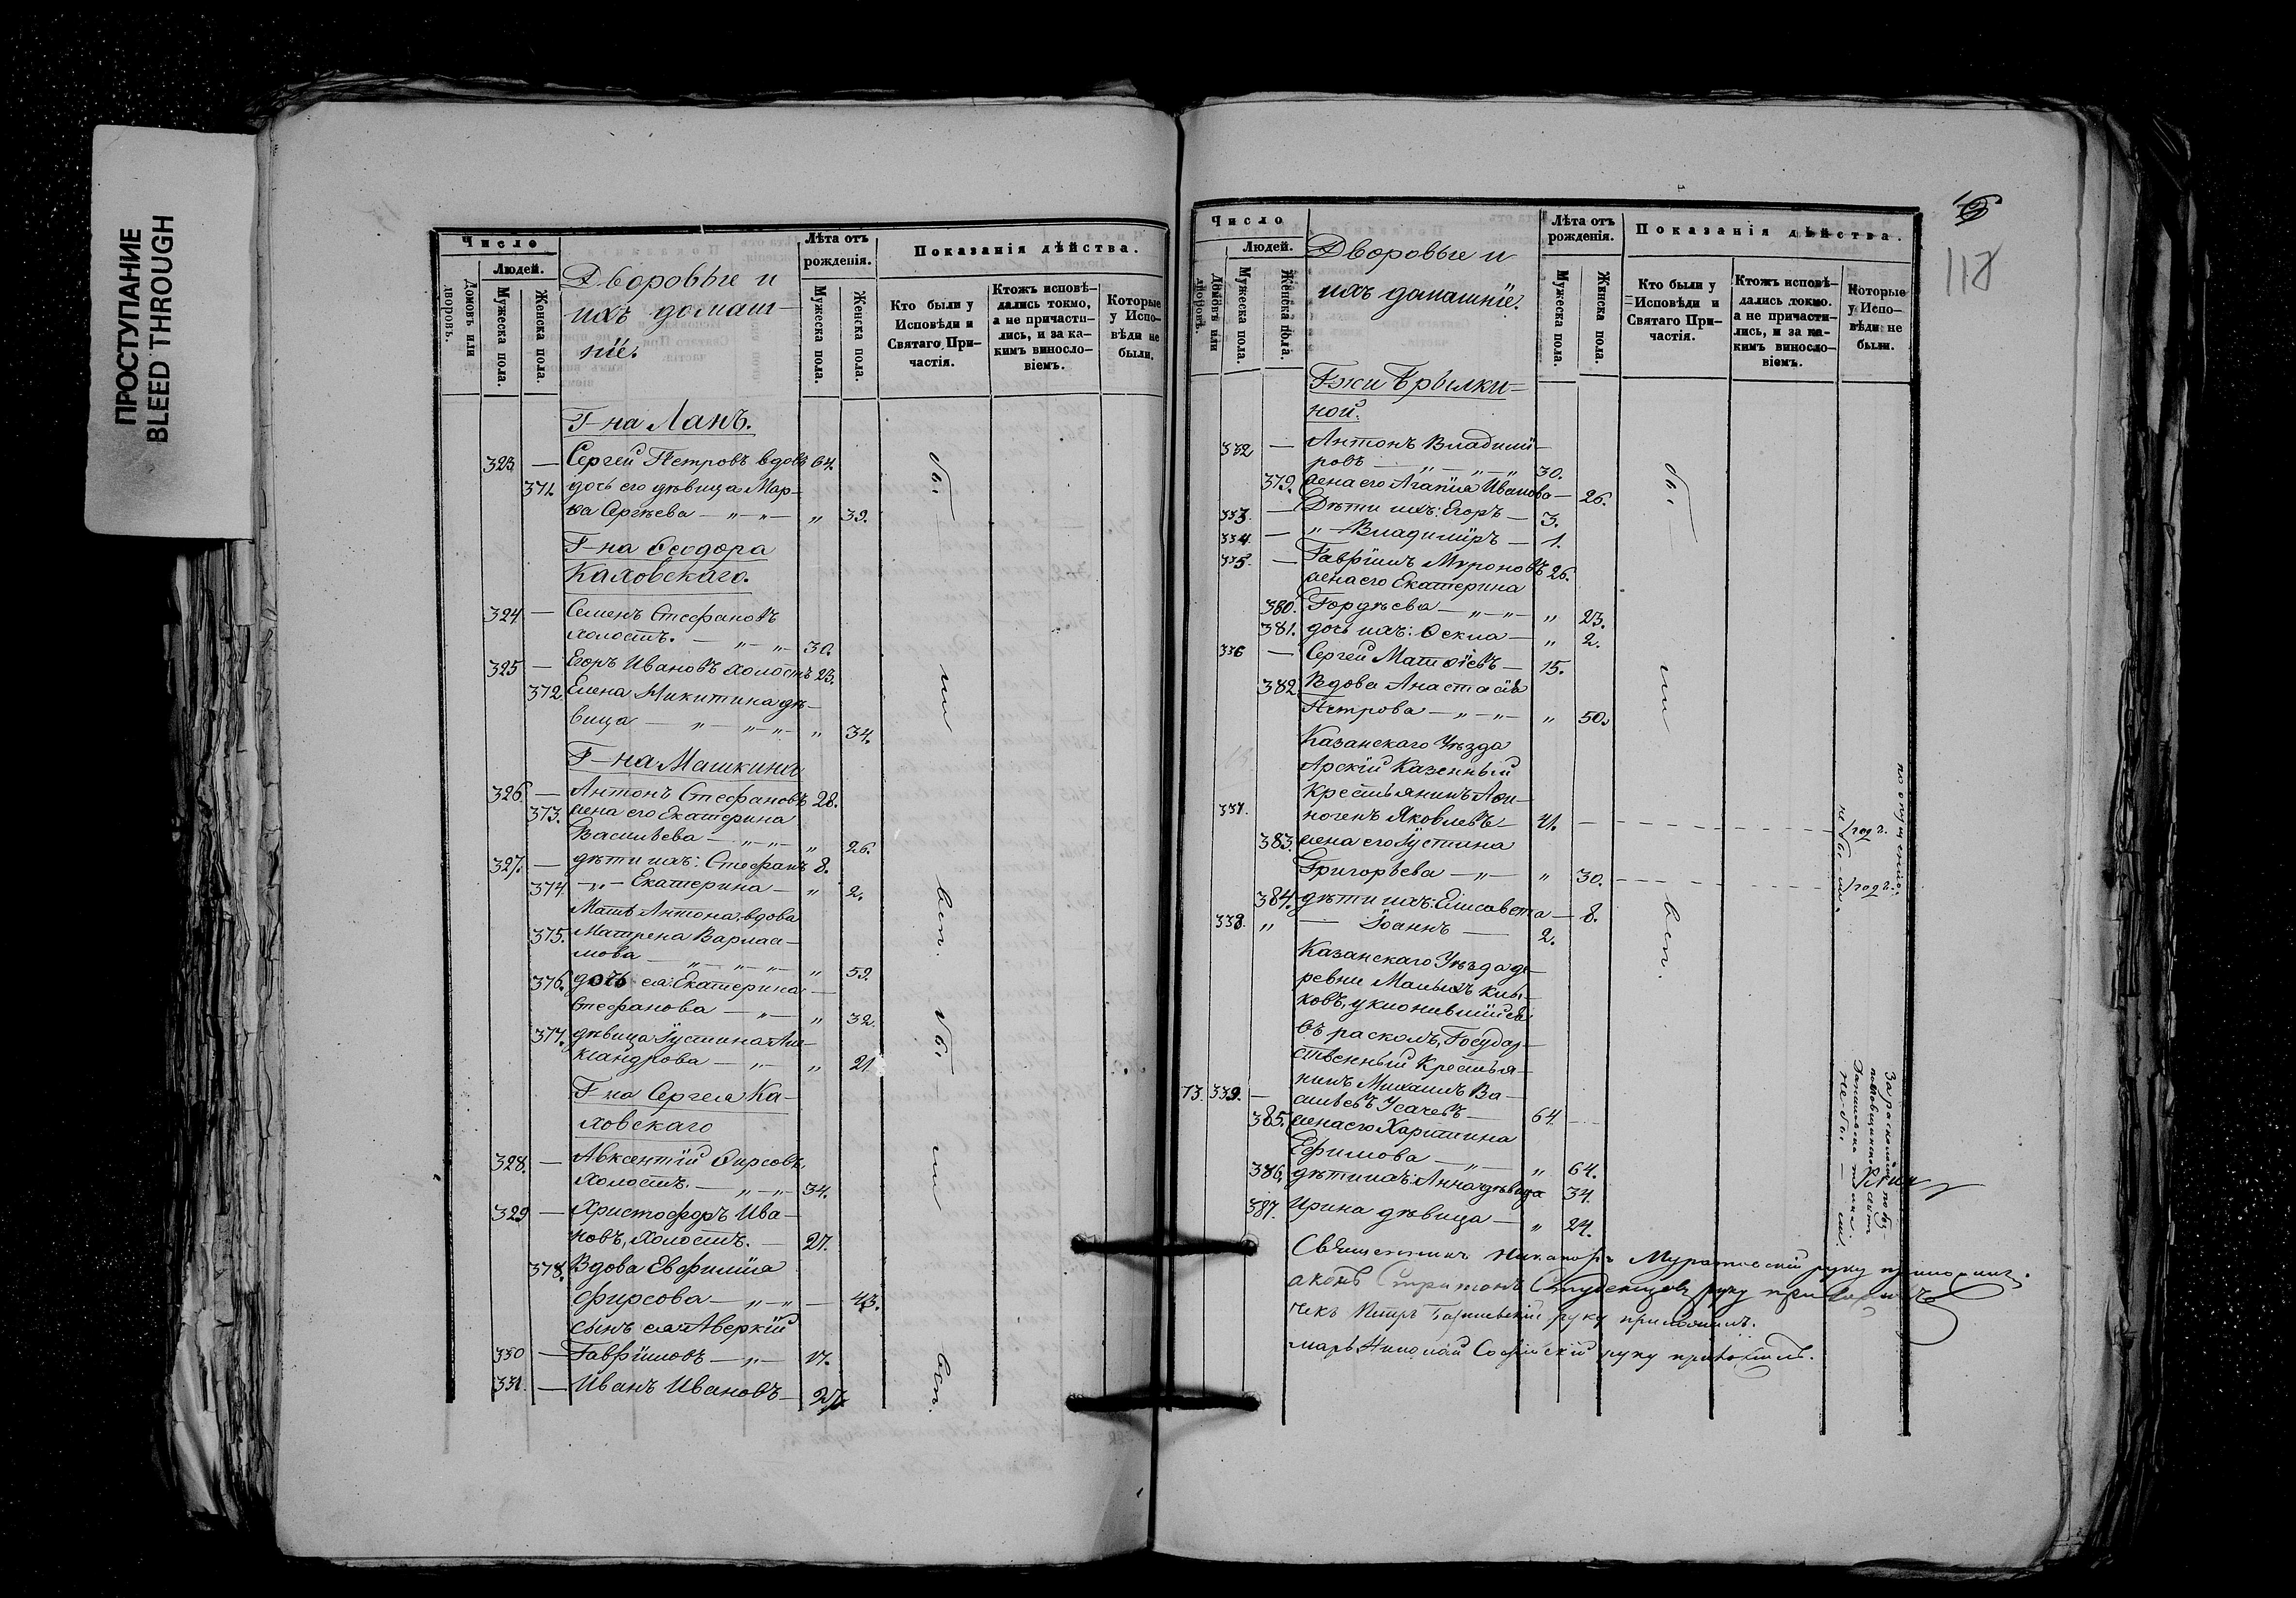 ПРОСТУПАНИЕ
BLEED THROUGH
Число
Людей.
Домовъ или дворовъ.
Мужеска пола.
Женска пола.
Дворовые и
ихъ домаш-
ніе.
Лѣта отъ
рожденія.
Мужеска пола.
Женска пола.
Показанія дѣйства.
Кто были у
Исповѣди и
Святаго При-
частія.
Ктожъ исповѣ-
дались токмо,
а не причасти-
лись, и за ка-
кимъ виносло-
віемъ.
Которые
у Испо-
вѣди не
были.
Г-на Ланъ.
323. — Сергей Петровъ вдовъ 64.
371. дочь его дѣвица Мар-
ѳа Сергѣева — „ — „ — „ 39.
Г-на Ѳеодора
Каховскаго.
324 — Семенъ Стефановъ
холостъ. — „ — „ — 30.
325 — Егоръ Ивановъ холостъ 23.
372. Елена Никитина дѣ-
вица — „ — „ — „ — „ 34.
Г-на Машкина
326. — Антонъ Стефановъ 28.
373. жена его Екатерина
Васильева — „ — „ — „ 26.
327. — дѣти ихъ: Стефанъ 8.
374. — „ — Екатерина — „ 2.
Мать Антона, вдова
375. Матрена Варлаа-
мова — „ — „ — „ — „ 59.
376. дочь ея: Екатерина —
Стефанова — „ — „ 32.
377. дѣвица Іустина Але-
ксандрова — „ — „ 21.
Г-на Сергея Ка-
ховскаго
328. — Авксентій Фирсовъ,
холостъ. — „ — „ — 34.
329 — Христофоръ Ива-
новъ, холостъ. — 27.
378. Вдова Евфимія
Фирсова — „ — „ — 43.
сынъ ея: Аверкій
330 — Гавріиловъ — „ — 17.
331. — Иванъ Ивановъ — 27.
бы
ли
всп.
бы
ли
всп.
118
Число
Людей.
Домовъ или дворовъ.
Мужеска пола.
Женска пола.
Дворовые и
ихъ домашніе.
Лѣта отъ
рожденія.
Мужеска пола.
Женска пола.
Показанія дѣйства.
Кто были у
Исповѣди и
Святаго При-
частія.
Ктожъ исповѣ-
дались токмо.
а не причасти-
лись, и за ка-
кимъ виносло-
віемъ.
Которые
у Испо-
вѣди не
были.
Г-жи Брылки-
ной.
332 — Антонъ Владимі-
ровъ — „ — „ — „ 30.
379. жена его Агапія Иванова — 26.
333. — Дѣти ихъ: Егоръ — 3.
334. — „ — Владиміръ — 1.
335. — Гавріилъ Мироновъ 26.
жена его Екатерина
380. Гордѣева — „ — „ — „ 23.
381. дочь ихъ: Ѳекла — „ 2.
336 — Сергей Матѳіевъ — 15.
382. Вдова Анастасія
Петрова — „ — „ — „ 50.
Казанскаго Уѣзда
Арскій Казенный
Крестьянинъ Аѳи-
337. ногенъ Яковлевъ — 41.
383. жена его Іустина
Григорьева — „ — „ 30.
384. дѣти ихъ: Елисавета — 8.
338. „ — Іоаннъ — 2.
Казанскаго Уѣзда де-
ревни Малыхъ Клы-
ковъ, уклонившійся
въ расколъ, Государ-
ственный Крестья-
нинъ Михаилъ Ва-
73. 339. — сильевъ Усачевъ — 64.
385. жена его Харитина
Ефимова — „ — „ 64.
386. дѣти ихъ: Анна дѣвица 34.
387. Ирина дѣвица — „ 24.
бы
ли
всп.
по опущенію.
не бы-ли.
1 годъ.
1 годъ.
За расколомъ по без-
не бы — ли.
Священникъ Никаноръ Муратовскій руку приложилъ.
руку приложилъ
Петръ руку приложилъ.
марь Николай Софійскій руку приложилъ.